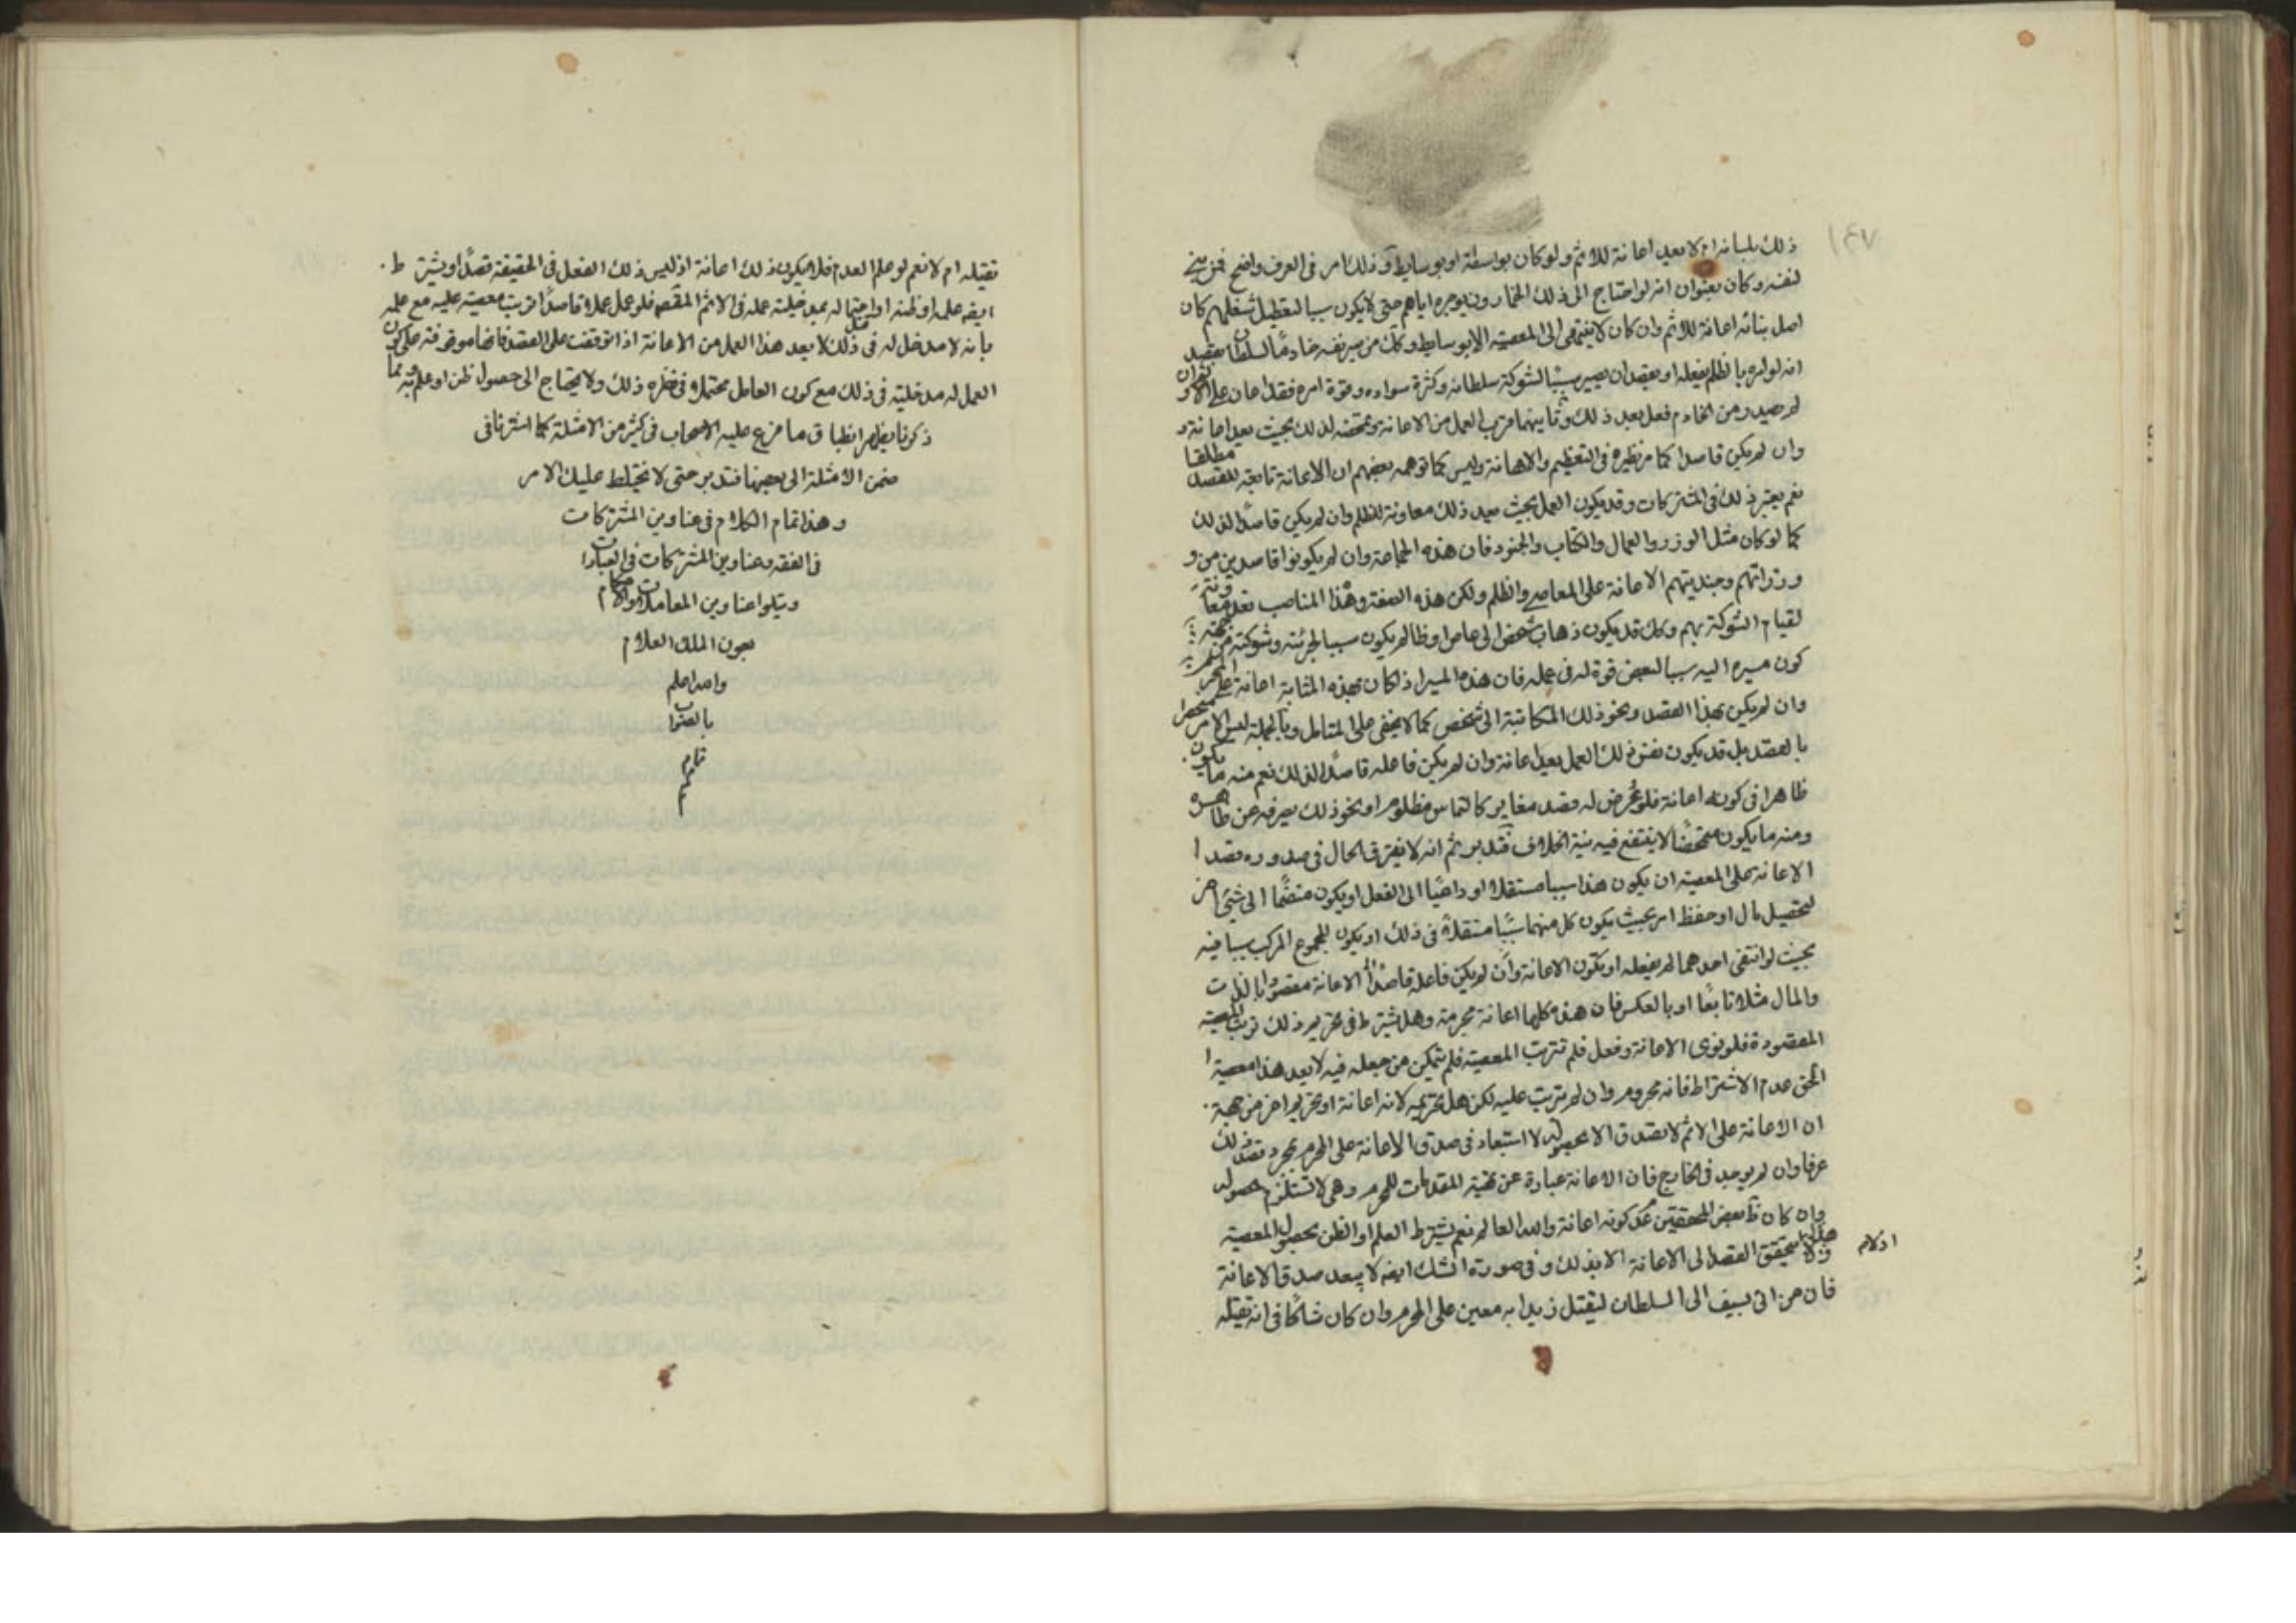 ١٤٧
ذلك بلسانه ام لا يعد اعانة للاثم ولو كان بواسطة او بوسايط وذلك امر فى العرف واضح فمن بنى
لنفسه وكان بعنوان انه لو احتاج الى ذلك الخمارون يوجره اياهم حتى لا يكون سببا لتعطيل شغلهم كان
اصل بنائه اعانة للاثم وان كان لا ينتهى الى المعصية الا بوسايط وكك من صير نفسه خادما لسلطان بقصد
انه لو امره بالظلم يفعله او بقصد ان يصير سببا لشوكة سلطانه وكثرة سواده وقوة امره فقد اعان على الاثم وان
لم يصدر من الخادم فعل بعد ذلك وثانيهما قرب العمل من الاعانة وتمحضه لذلك بحيث يعد اعانة و
وان لم يكن قاصدا كما مر نظيره فى التعظيم والاهانة وليس كما توهمه بعضهم ان الاعانة تابعة للقصد مطلقا
نعم يعتبر ذلك فى المشتركات وقد يكون العمل بحيث يعد ذلك معاونة للظلم وان لم يكن قاصدا لذلك
كما لو كان مثل الوزر والعمال والكتاب والجنود فان هذه الجماعة وان لم يكونوا قاصدين من و
وزراتهم وجنديتهم الاعانة على المعاصى والظلم ولكن هذه الصفة وهذا المناصب تعد معاونة
لقيام الشوكة بهم وكك قد يكون ذهاب شخص الى عاص او ظالم يكون سببا لجرئته وشوكته من جهة
كون مسيره اليه سببا لبعض قوة له فى عمله فان هذا المسير اذا كان بهذه المثابة اعانة على المحرم
وان لم يكن بهذا القصد ونحو ذلك المكاتبة الى شخص كما لا يخفى على المتامل وبالجملة ليس الامر منحصرا
بالقصد بل قد يكون نفس ذلك العمل يعد اعانة وان لم يكن فاعله قاصدا لذلك نعم منه ما يكون
ظاهرا فى كونه اعانة فلو عرض له قصد مغاير كالتماس مظلوم او نحو ذلك يصرفه عن ظاهره
ومنه ما يكون متمحضا لا ينتفع فيه نية الخلاف فتدبر ثم انه لا يفرق الحال فى صدوره بقصد ا
الاعانة على المعصية ان يكون هذا سببا مستقلا او داعيا الى الفعل او يكون منضما الى شئ اخر
لتحصيل مال او حفظ امر بحيث يكون كل منهما سببا مستقلا فى ذلك او يكون المجموع المركب سببا فيه
بحيث لو انتفى احدهما لم يفعله او يكون الاعانة وان لم يكن فاعله قاصدا الاعانة مقصودا بالذات
والمال مثلا تابعا او بالعكس فان هذه كلها اعانة محرمة وهل يشترط فى تحريم ذلك ترتب المعصية
المقصودة فلو نوى الاعانة وفعل فلم تترتب المعصية فلم يتمكن من جعله فيه لا يعد هذا معصية ا
الحق عدم الاشتراط فانه محروم وان لم يترتب عليه لكن هل تحريمه لانه اعانة او تحريم اخر من جهة
ان الاعانة على الاثم لا تصدق الا بحصوله لا استبعاد فى صدق الاعانة على المحرم بمجرد قصد ذلك
عرفا وان لم يوجد فى الخارج فان الاعانة عبارة عن تهيئة المقدمات للمحرم وهى لا تستلزم حصوله
وان كان ظ بعض المحققين عدم كونه اعانة والله العالم نعم يشترط العلم او الظن بحصول المعصية
اذ لا يتحقق القصد الى الاعانة الا بذلك وفى صورة الشك ايضا لا يبعد صدق الاعانة
فان من اتى بسيف الى السلطان ليقتل زيدا به معين على المحرم وان كان شاكا فى انه يقتله
يقتله ام لا نعم لو علم العدم فلا يكون ذلك اعانة اذ ليس ذلك الفعل فى الحقيقة قصدا ويشترط
ايضا علمه او ظنه او احتماله بمدخلية عمله فى الاثم المقصود فلو عمل عملا قاصدا ترتب معصية عليه مع علمه
بانه لا مدخل له فى ذلك لا يعد هذا العمل من الاعانة اذا توقفت على القصد فانها موقوفة على كون
العمل له مدخلية فى ذلك مع كون العامل محتملا فى نظره ذلك ولا يحتاج الى حصول ظن او علم به وبما
ذكرنا يظهر انطباق ما فرع عليه الاصحاب فى كثير من الامثلة كما اشرنا فى
ضمن الامثلة الى بعضها فتدبر حتى لا تختلط عليك الامر
وهذا تمام الكلام فى عناوين المشتركات
فى الفقه وعناوين المشتركات فى العبادات
ويتلوا عناوين المعاملات والاحكام
بعون الملك العلام
والله اعلم
بالصواب
تمام